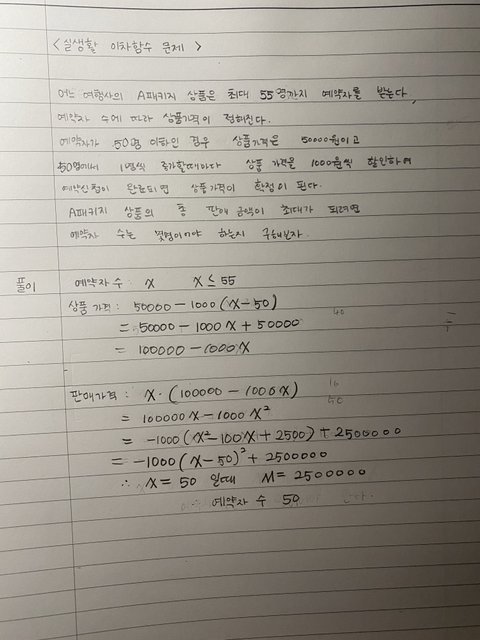 < 실생활 이차함수 문제 >
어느 여행사의 A패키지 상품은 최대 55명까지 예약자를 받는다.
예약자 수에 따라 상품가격이 정해진다.
예약자가 50명 이하인 경우 상품가격은 50000원이고
50명에서 1명씩 증가할때마다 상품 가격을 1000원씩 할인하여
예약신청이 완료되면 상품가격이 확정이 된다.
A패키지 상품의 총 판매 금액이 최대가 되려면
예약자 수는 몇명이어야 하는지 구해보자.
풀이 예약자 수 : x x ≤ 55
상품 가격 : 50000 - 1000 (x - 50)
= 50000 - 1000x + 50000
= 100000 - 1000x
판매가격 : x · (100000 - 1000x)
= 100000x - 1000x²
= -1000(x² - 100x + 2500) + 2500000
= -1000(x - 50)² + 2500000
∴ x = 50 일때 M = 2500000
∴ 예약자 수 50